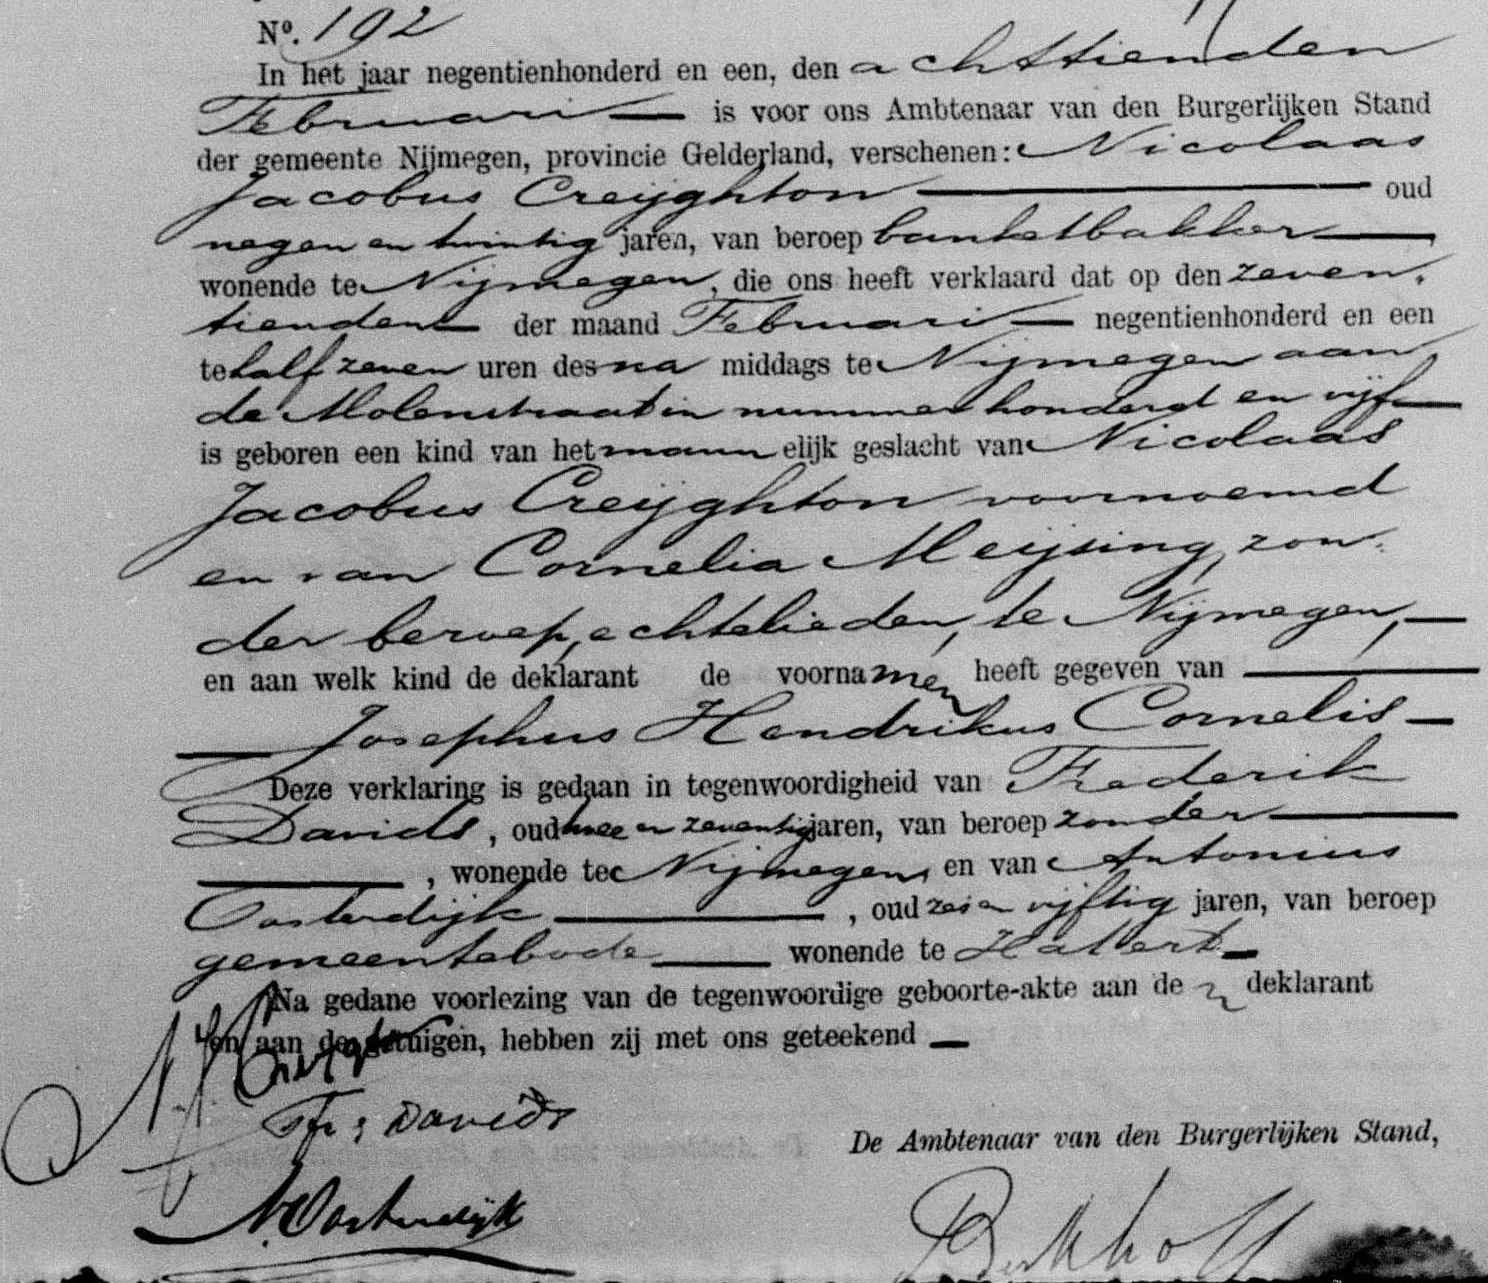 Nº. 192
In het jaar negentienhonderd en een, den achttienden
Februari is voor ons Ambtenaar van den Burgerlijken Stand
der gemeente Nijmegen, provincie Gelderland, verschenen: Nicolaas
Jacobus Creijghton oud
negen en twintig jaren, van beroep banketbakker
wonende te Nijmegen, die ons heeft verklaard dat op den zeven-
tienden der maand Februari negentienhonderd en een
te half zeven uren des na middags te Nijmegen aan
de Molenstraat in nummer honderd en vijf
is geboren een kind van het mann elijk geslacht van Nicolaas
Jacobus Creijghton voornoemd
en van Cornelia Meijsing, zon-
der beroep, echtelieden, te Nijmegen,
en aan welk kind de deklarant de voornamen heeft gegeven van
Josephus Hendrikus Cornelis
Deze verklaring is gedaan in tegenwoordigheid van Frederik
Davids, oud twee en zeventig jaren, van beroep zonder
, wonende te Nijmegen, en van Antonius
Oosterdijk, oud zes en vijftig jaren, van beroep
gemeentebode wonende te Hatert
Na gedane voorlezing van de tegenwoordige geboorte-akte aan de deklarant
en aan de getuigen, hebben zij met ons geteekend
N. J. Creijghton
Fr: Davids
De Ambtenaar van den Burgerlijken Stand,
A. Oosterdijk